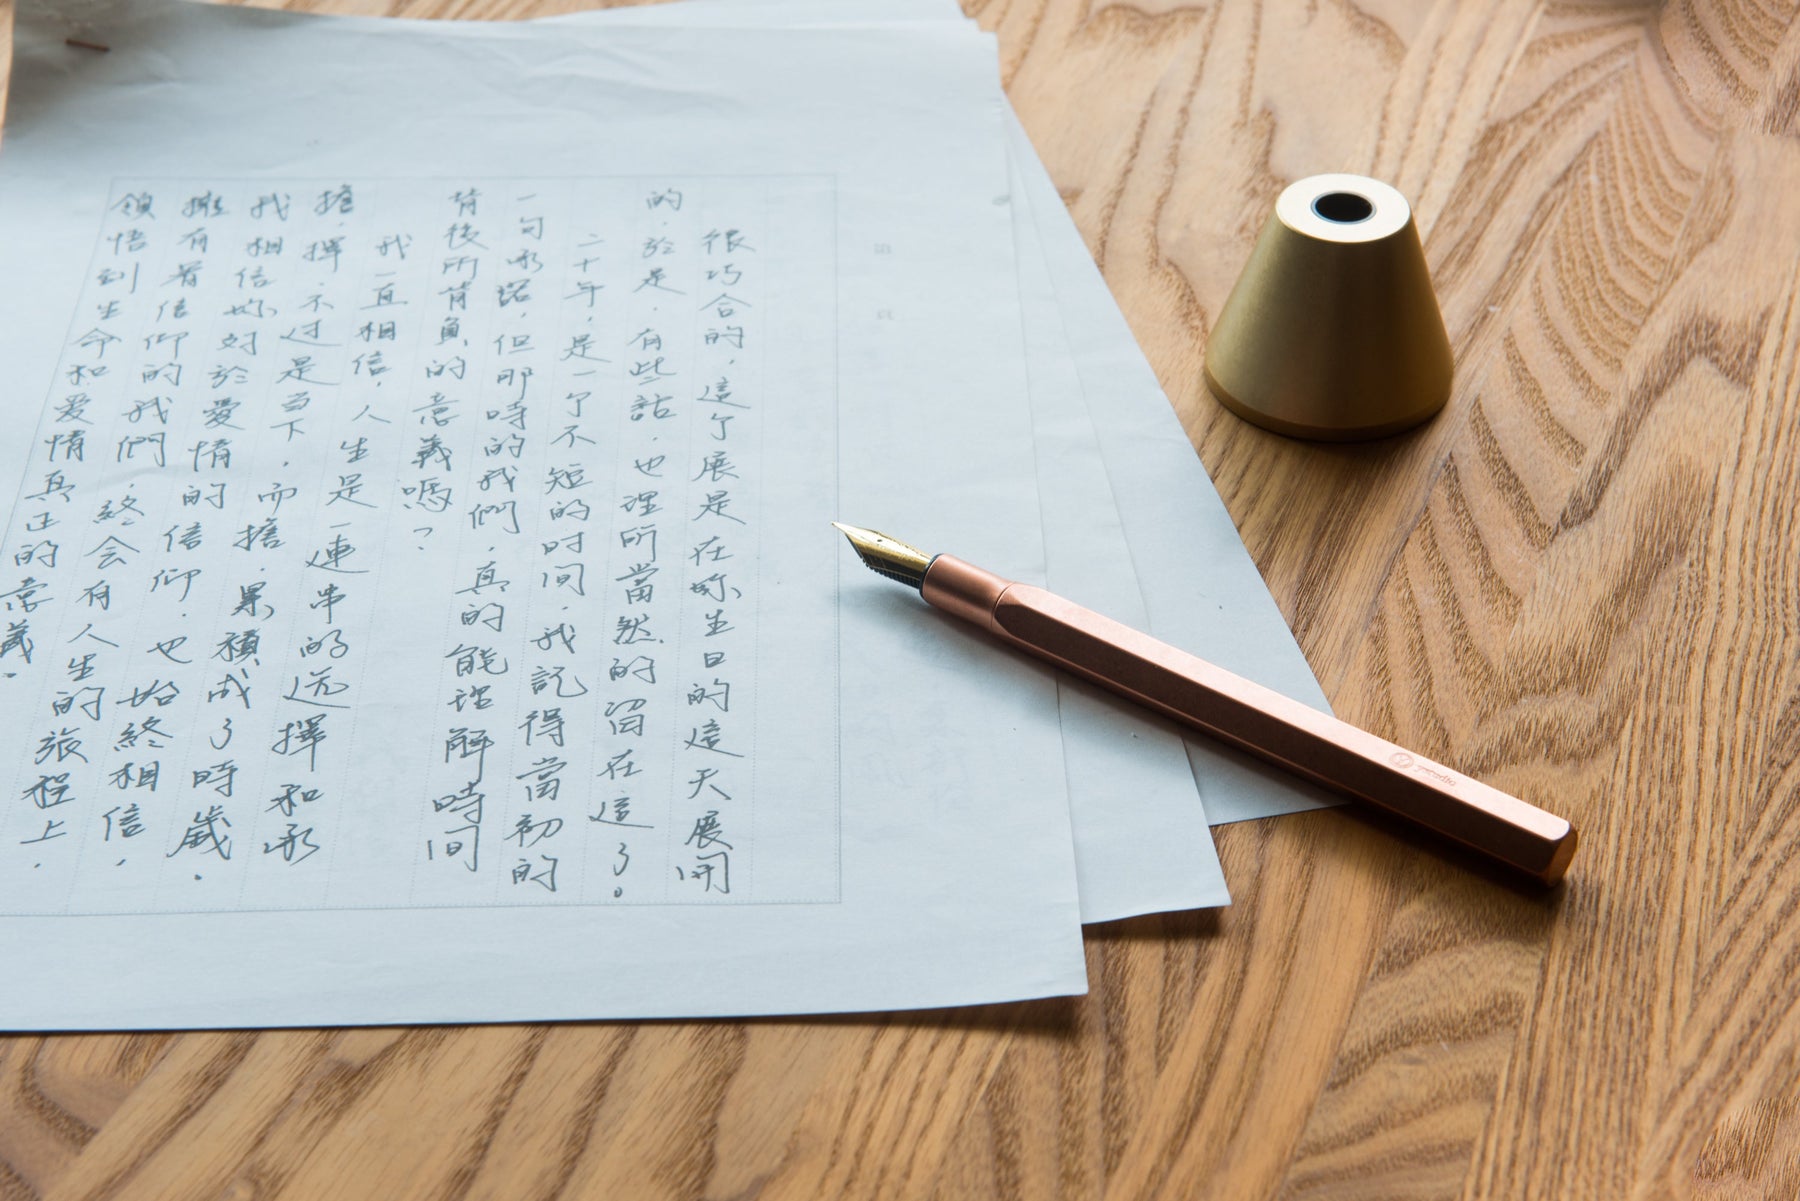 很巧合的，這个展是在妳生日的這天展開
的，於是，有些話，也理所當然的留在這了。
二十年，是一个不短的时间，我記得當初的
一句承諾，但那時的我們，真的能理解時間
背後所背負的意義嗎？
我一直相信，人生是一連串的选擇和承
擔，擇，不过是当下，而擔，累積成了時歲，
我相信妳对於愛情的信仰，也始終相信，
擁有著信仰的我們，終会有人生的旅程上，
領悟到生命和爱情真正的意義。
ystudio